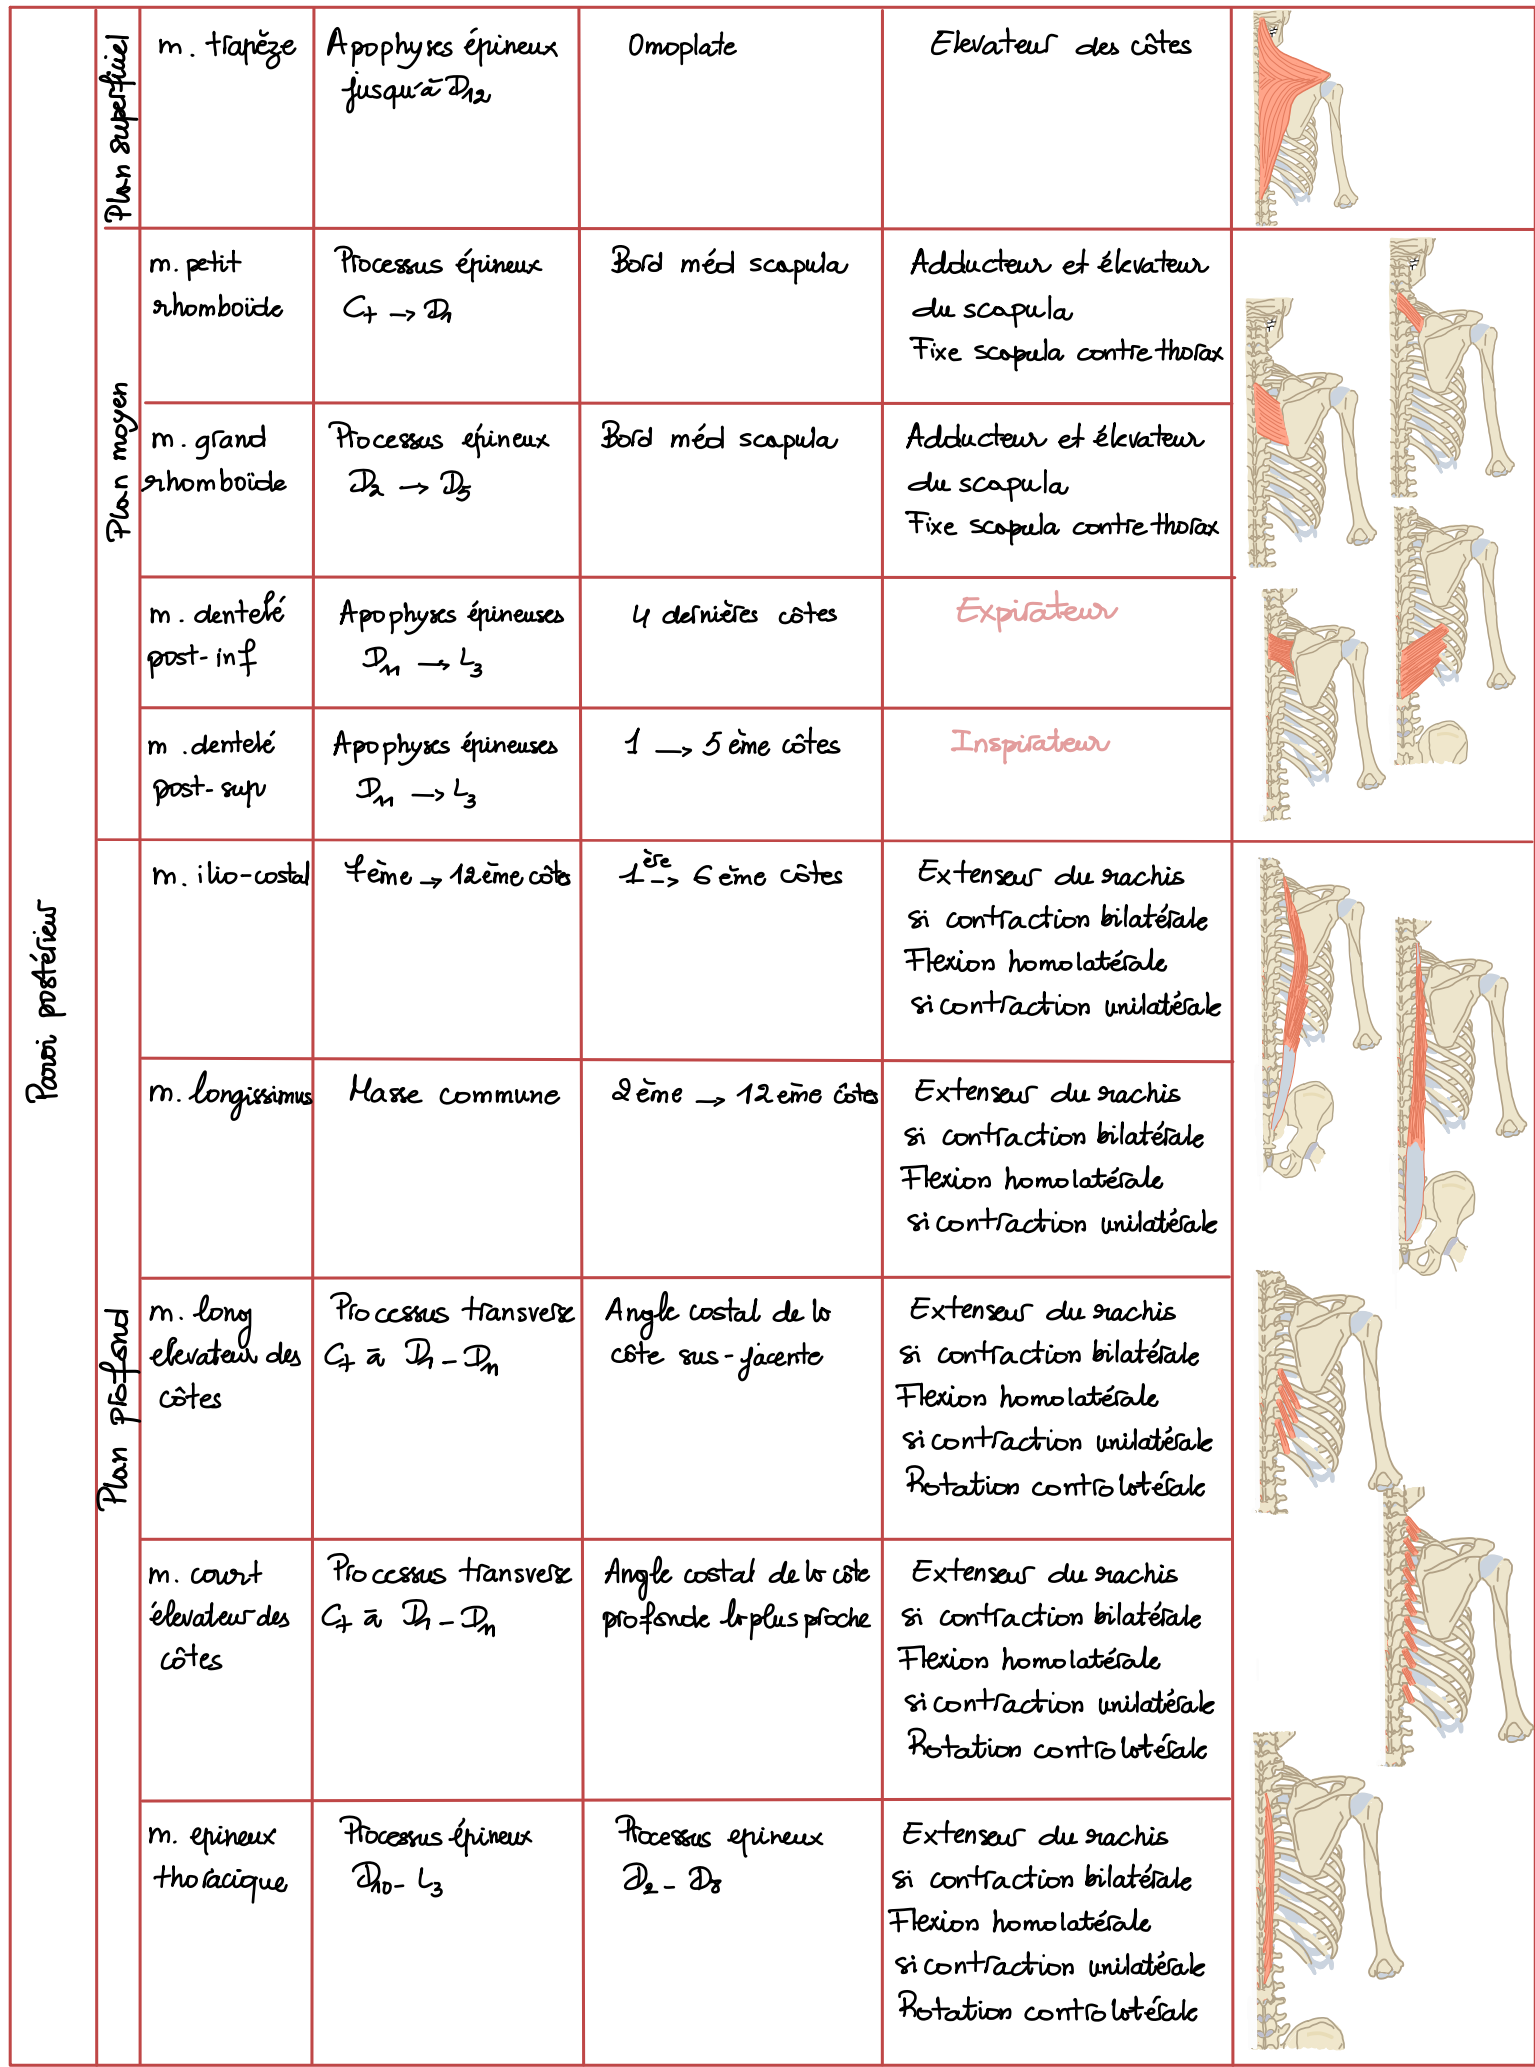 Paroi postérieur
Plan superficiel
m. trapèze
Apophyses épineux
jusqu'à D12
Omoplate
Elevateur des côtes
Plan moyen
m. petit
rhomboïde
Processus épineux
C7 → D1
Bord méd scapula
Adducteur et élevateur
du scapula
Fixe scapula contre thorax
m. grand
rhomboïde
Processus épineux
D2 → D5
Bord méd scapula
Adducteur et élevateur
du scapula
Fixe scapula contre thorax
m. dentelé
post-inf
Apophyses épineuses
D11 → L3
4 dernières côtes
Expirateur
m. dentelé
post-sup
Apophyses épineuses
D11 → L3
1 → 5 ème côtes
Inspirateur
Plan profond
m. ilio-costal
7ème → 12ème côtes
1ère → 6 ème côtes
Extenseur du rachis
si contraction bilatérale
Flexion homolatérale
si contraction unilatérale
m. longissimus
Masse commune
2ème → 12ème côtes
Extenseur du rachis
si contraction bilatérale
Flexion homolatérale
si contraction unilatérale
m. long
elevateur des
côtes
Processus transverse
C7 à D1 - D11
Angle costal de la
côte sus-jacente
Extenseur du rachis
si contraction bilatérale
Flexion homolatérale
si contraction unilatérale
Rotation controlatérale
m. court
élevateur des
côtes
Processus transverse
C7 à D1 - D11
Angle costal de la côte
profonde la plus proche
Extenseur du rachis
si contraction bilatérale
Flexion homolatérale
si contraction unilatérale
Rotation controlatérale
m. epineux
thoracique
Processus épineux
D10 - L3
Processus epineux
D2 - D8
Extenseur du rachis
si contraction bilatérale
Flexion homolatérale
si contraction unilatérale
Rotation controlatérale